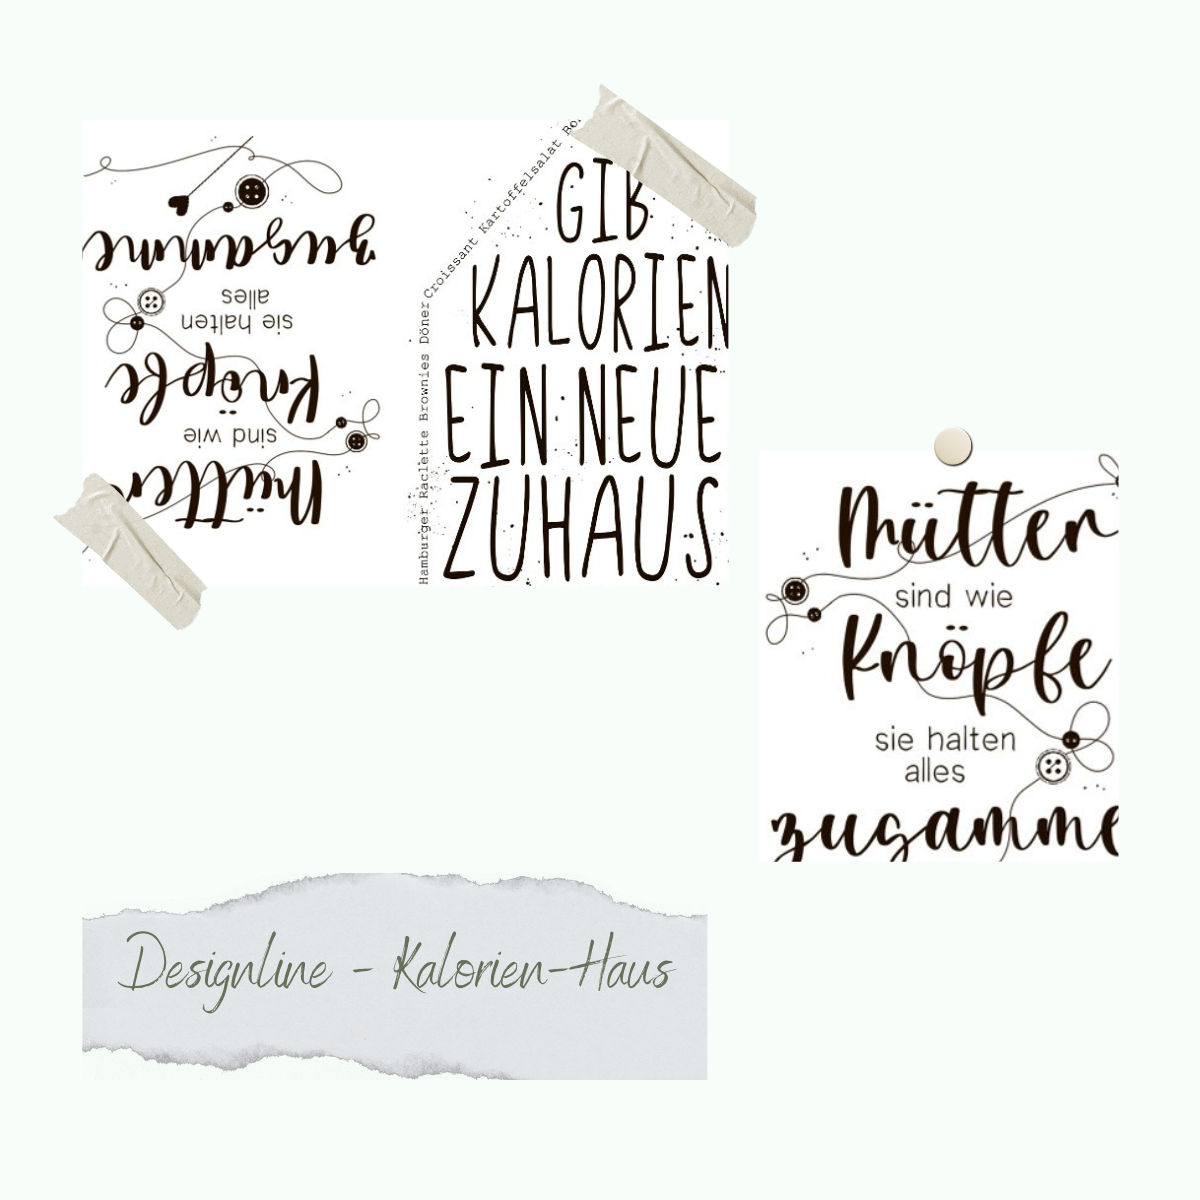 zusamme
alles
sie halten
Knöpfe
sind wie
Mütter
Hamburger Raclette Brownies Döner Croissant Kartoffelsalat Bo
GIB
KALORIEN
EIN NEUE
ZUHAUS
Mütter
sind wie
Knöpfe
sie halten
alles
zusamme
Designline - Kalorien-Haus